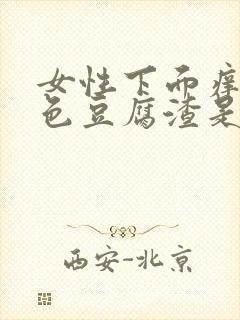 女性下面痒
色豆腐渣是
西安-北京